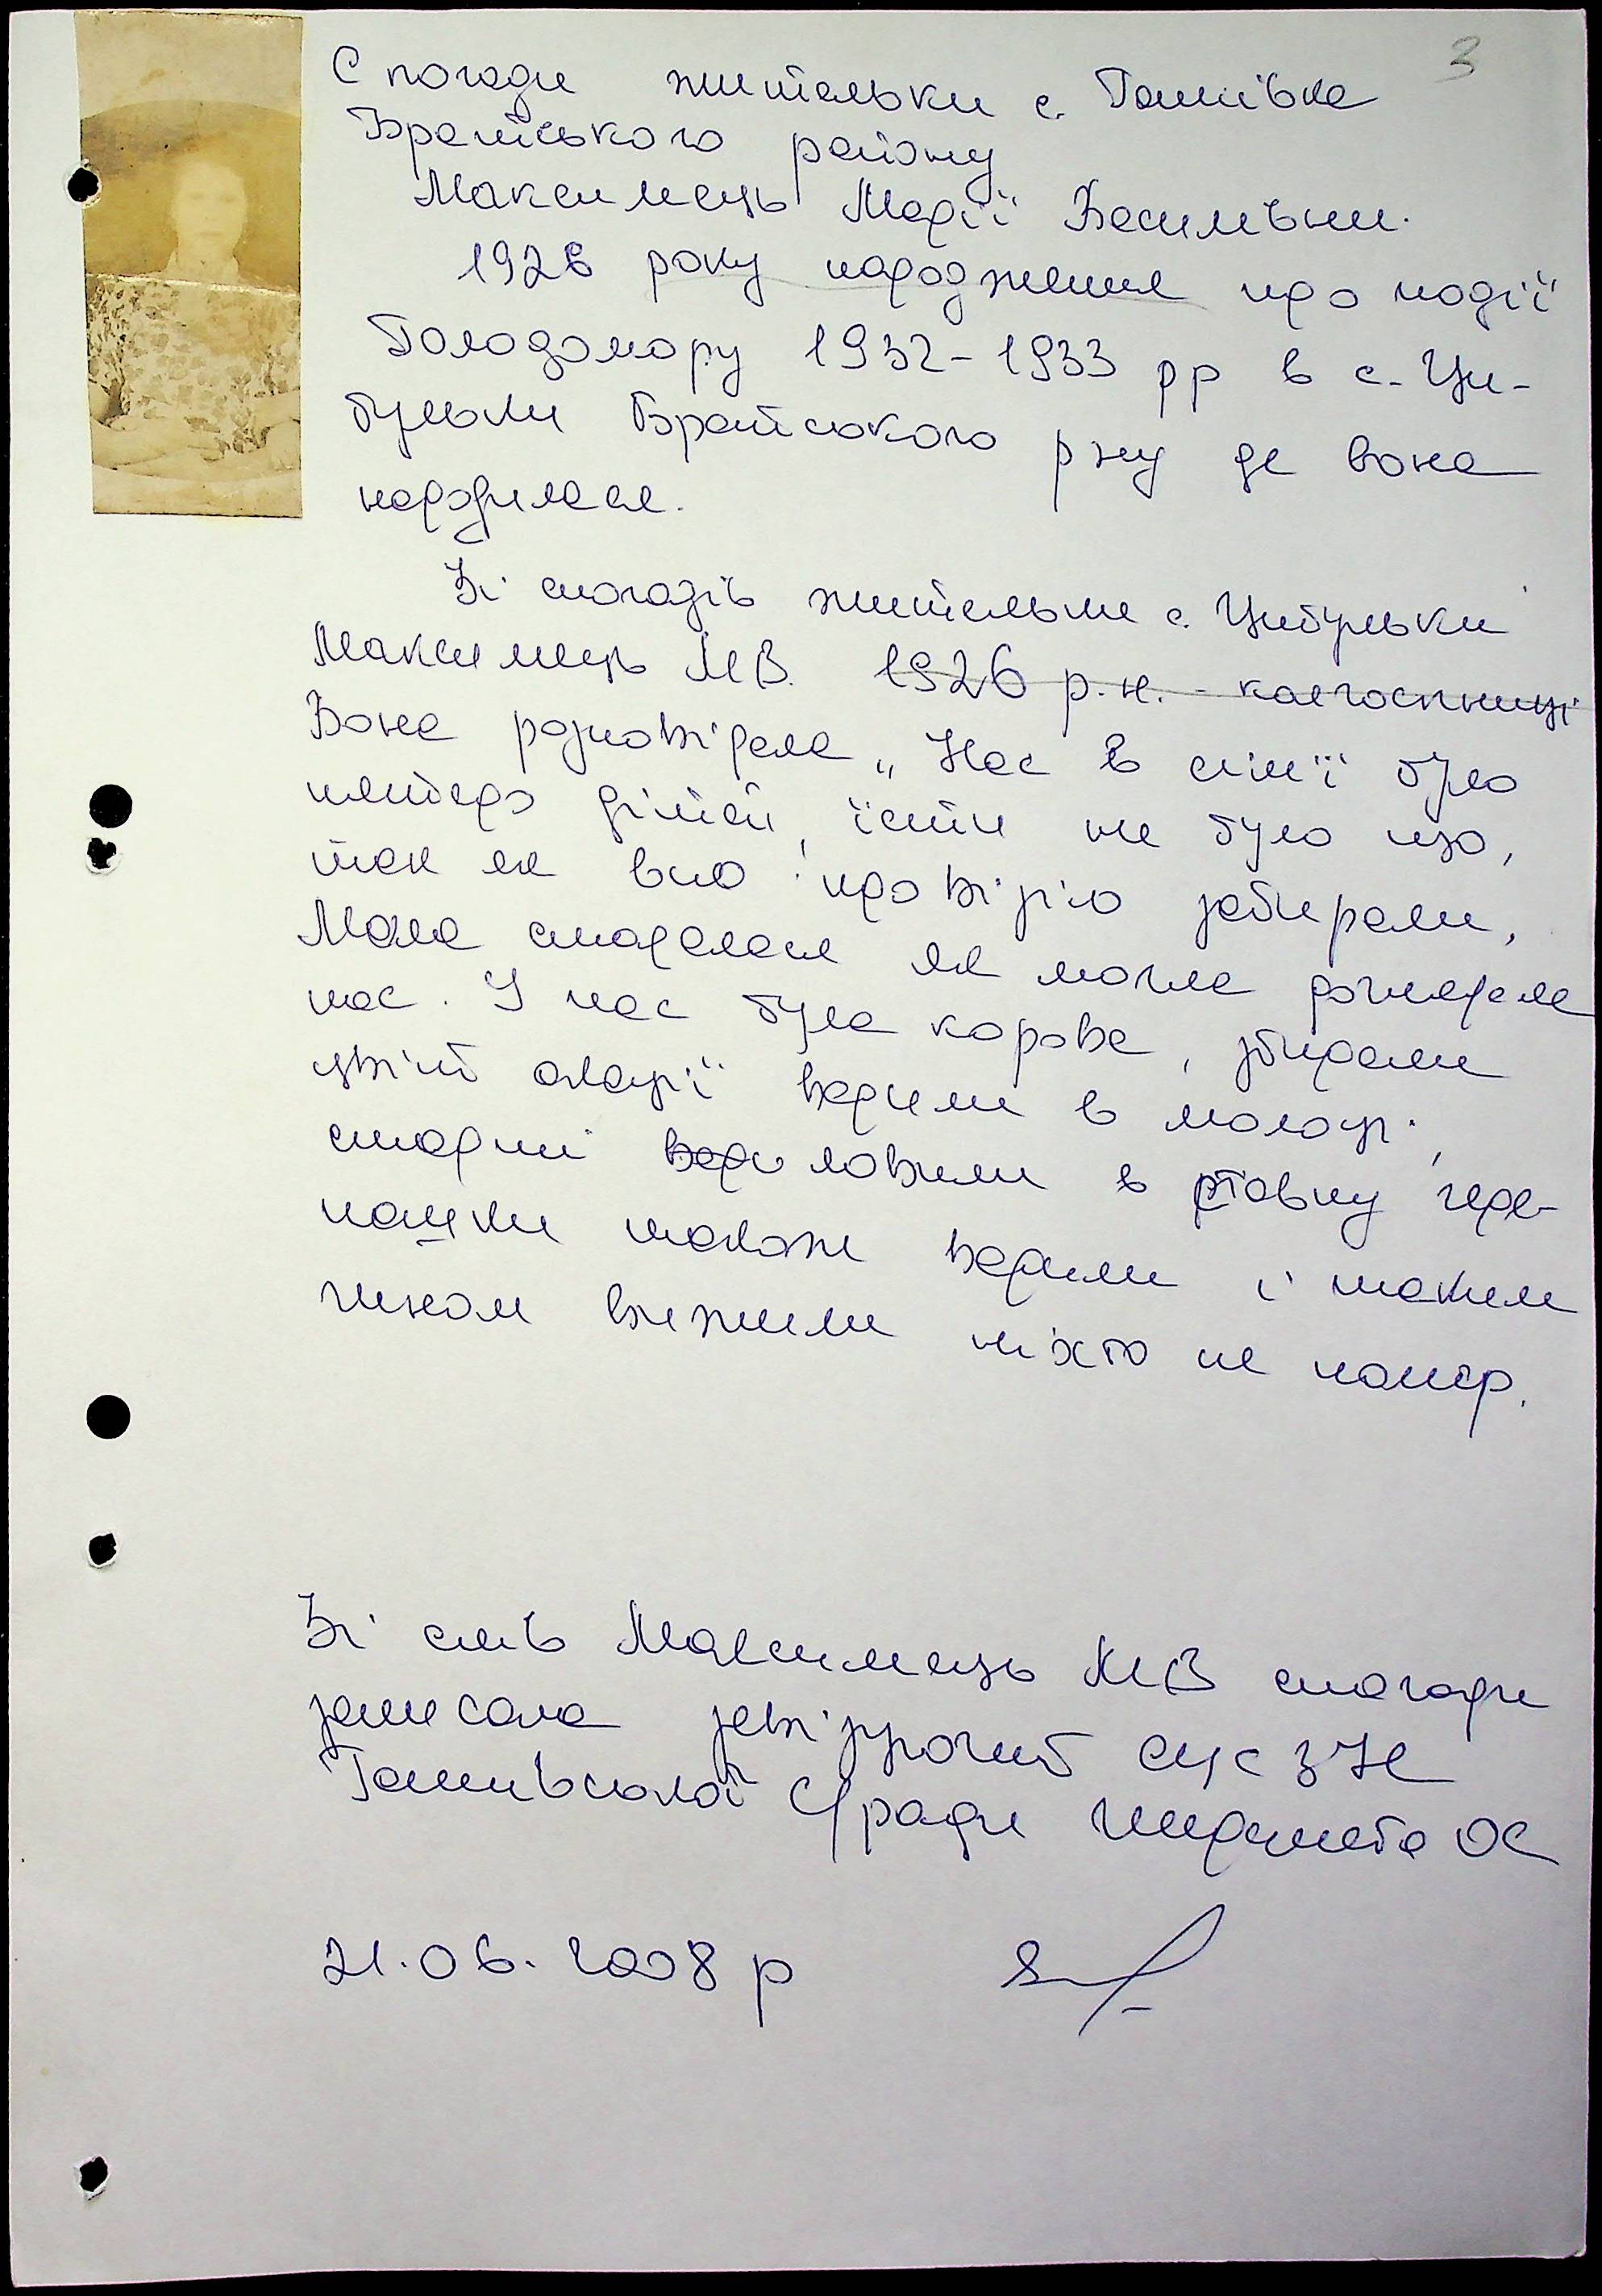 3
Спогади жительки с. Ганнівка
Братського району
Максимець Марії Василівни.
1926 року народження про події
Голодомору 1932-1933 рр в с. Ци-
бульки Братського р-ну де вона
народилася.
Зі спогадів жительки с. Цибульки
Максимець М.В. 1926 р.н. - колгоспниці
Вона розповідала „Нас в сім'ї було
пятеро дітей, їсти не було що,
так як всю провізію забирали,
Мама старалася як могла доглядала
нас. У нас була корова, збирали
цвіт акації варили в молоці,
старші вари ловили в ставку чере-
пашки також варили і таким
чином вижили ніхто не помер.
Зі слів Максимець МВ спогади
записала завідуючий СК с
Ганнівської С/ради ОС
21.06.2008 р